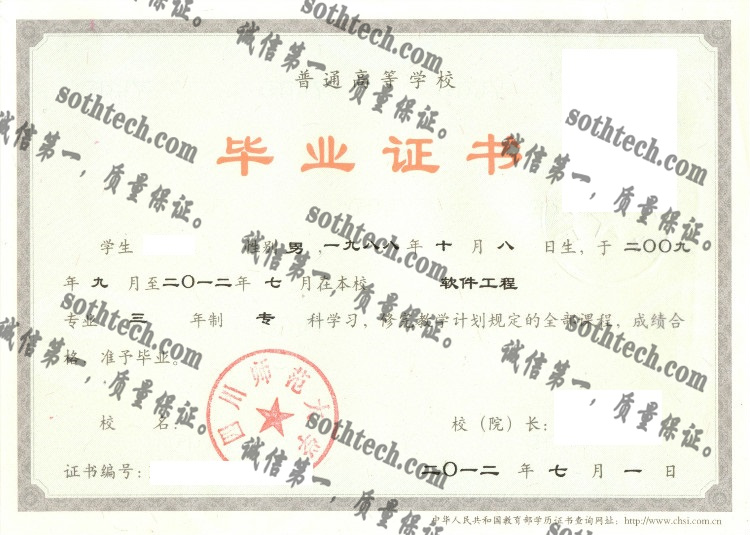 普通高等学校
毕业证书
学生 性别 男 ,一九八八 年 十 月 八 日生, 于 二〇〇九
年 九 月至 二〇一二 年 七 月在本校 软件工程
专业 三 年制 专 科学习, 修完教学计划规定的全部课程, 成绩合
格, 准予毕业。
校 名:
四川师范大学
校（院）长:
证书编号:
二〇一二 年 七 月 一 日
中华人民共和国教育部学历证书查询网址: http://www.chsi.com.cn
sothtech.com
诚信第一，质量保证。
sothtech.com
诚信第一，质量保证。
sothtech.com
诚信第一，质量保证。
sothtech.com
诚信第一，质量保证。
sothtech.com
诚信第一，质量保证。
sothtech.com
诚信第一，质量保证。
sothtech.com
诚信第一，质量保证。